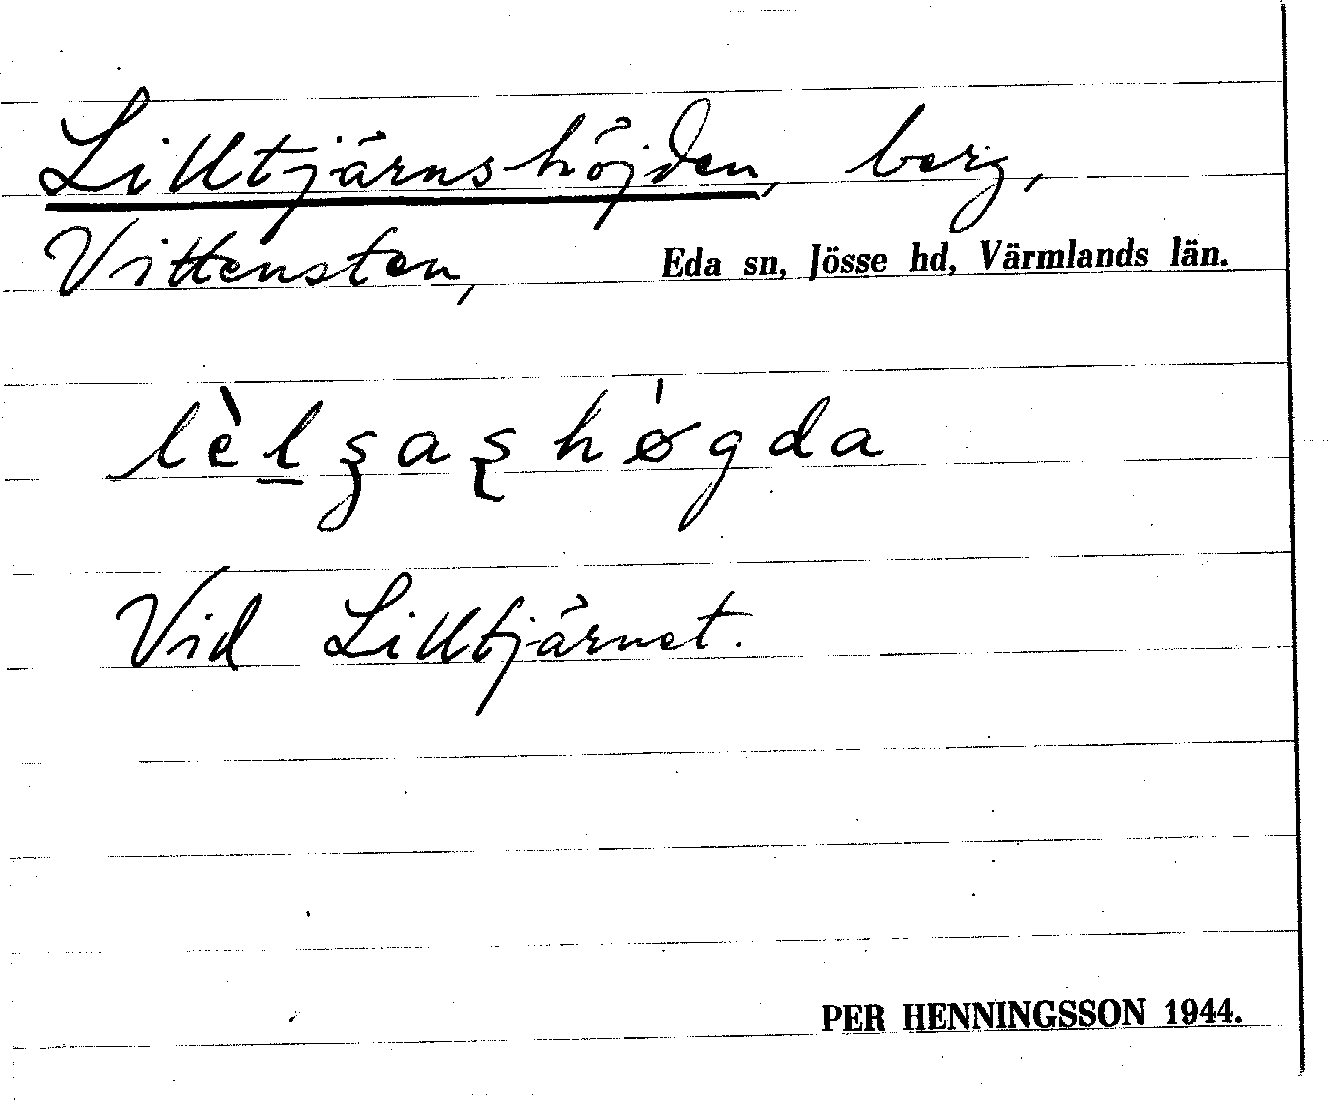 Lilltjärnshöjden, berg,
Vittensten, Eda sn, Jösse hd, Värmlands län.
lèl̲ʒaʂhǿgda
Vid Lilltjärnet.
PER HENNINGSSON 1944.